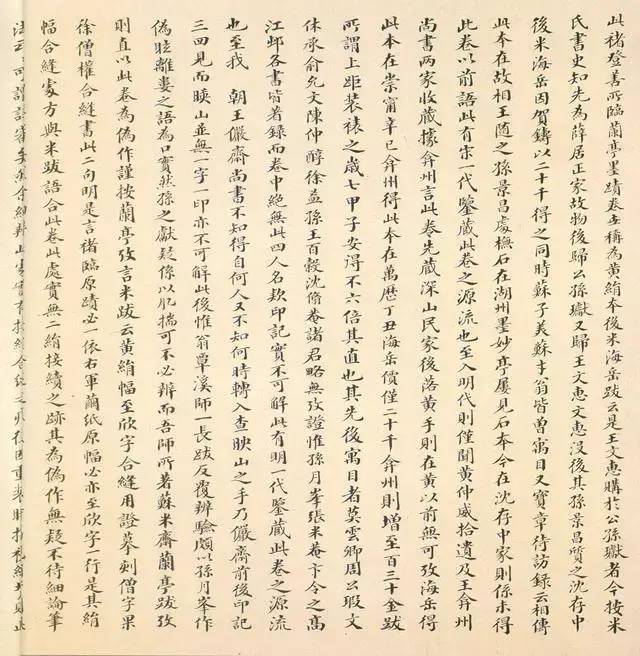 此褚登善所臨蘭亭墨蹟卷世稱為黃絹本後米海岳跋云是王文惠購於公孫瓛者今按米
氏書史知先為薛居正家故物後歸公孫瓛又歸王文惠文惠沒後其孫景昌質之沈存中
後米海岳因賀鑄以二十千得之同時蘇子美蘇才翁皆曾寓目又寶章待訪錄云相傳
此本在故相王隨之孫景昌處橅石在湖州墨妙亭屢見石本今在沈存中家則係未得
此卷以前語此有宋一代鑒藏此卷之源流也至入明代則僅聞黃仲威拾遺及王弇州
尚書兩家收藏據弇州言此卷先藏深山民家後落黃手則在黃以前無可攷海岳得
此本在崇甯辛巳弇州得此本在萬歷丁丑海岳價僅二十千弇州則增至百三十金跋
所謂上距裝裱之歲七甲子安得不六倍其直也其先後寓目者莫雲卿周公瑕文
休承俞允文陳仲醇徐益孫王百穀沈脩卷諸君略無攷證惟孫月峯張米菴卞令之高
江邨各書皆著錄而卷中絕無此四人名款印記實不可解此有明一代鑒藏此卷之源流
也至我 朝王儼齋尚書不知得自何人又不知何時轉入查映山之手乃儼齋前後印記
三四見而映山並無一字一印亦不可解此後惟翁覃溪師一長跋反覆辨驗頗以孫月峯作
偽眩離婁之語為口實然孫之獻疑係以肊揣可不必辨而吾師所著蘇米齋蘭亭跋攷
則直以此卷為偽作謹按蘭亭攷言米跋云黃絹幅至欣字合縫用證摹刻僧字果
徐僧權合縫書此二向明是言褚臨原蹟必一依右軍繭紙原幅必亦至欣字一行是其絹
幅合縫處方與米跋語合此卷此處實無二絹接續之跡其為偽作無疑不待細論筆
法云云可謂